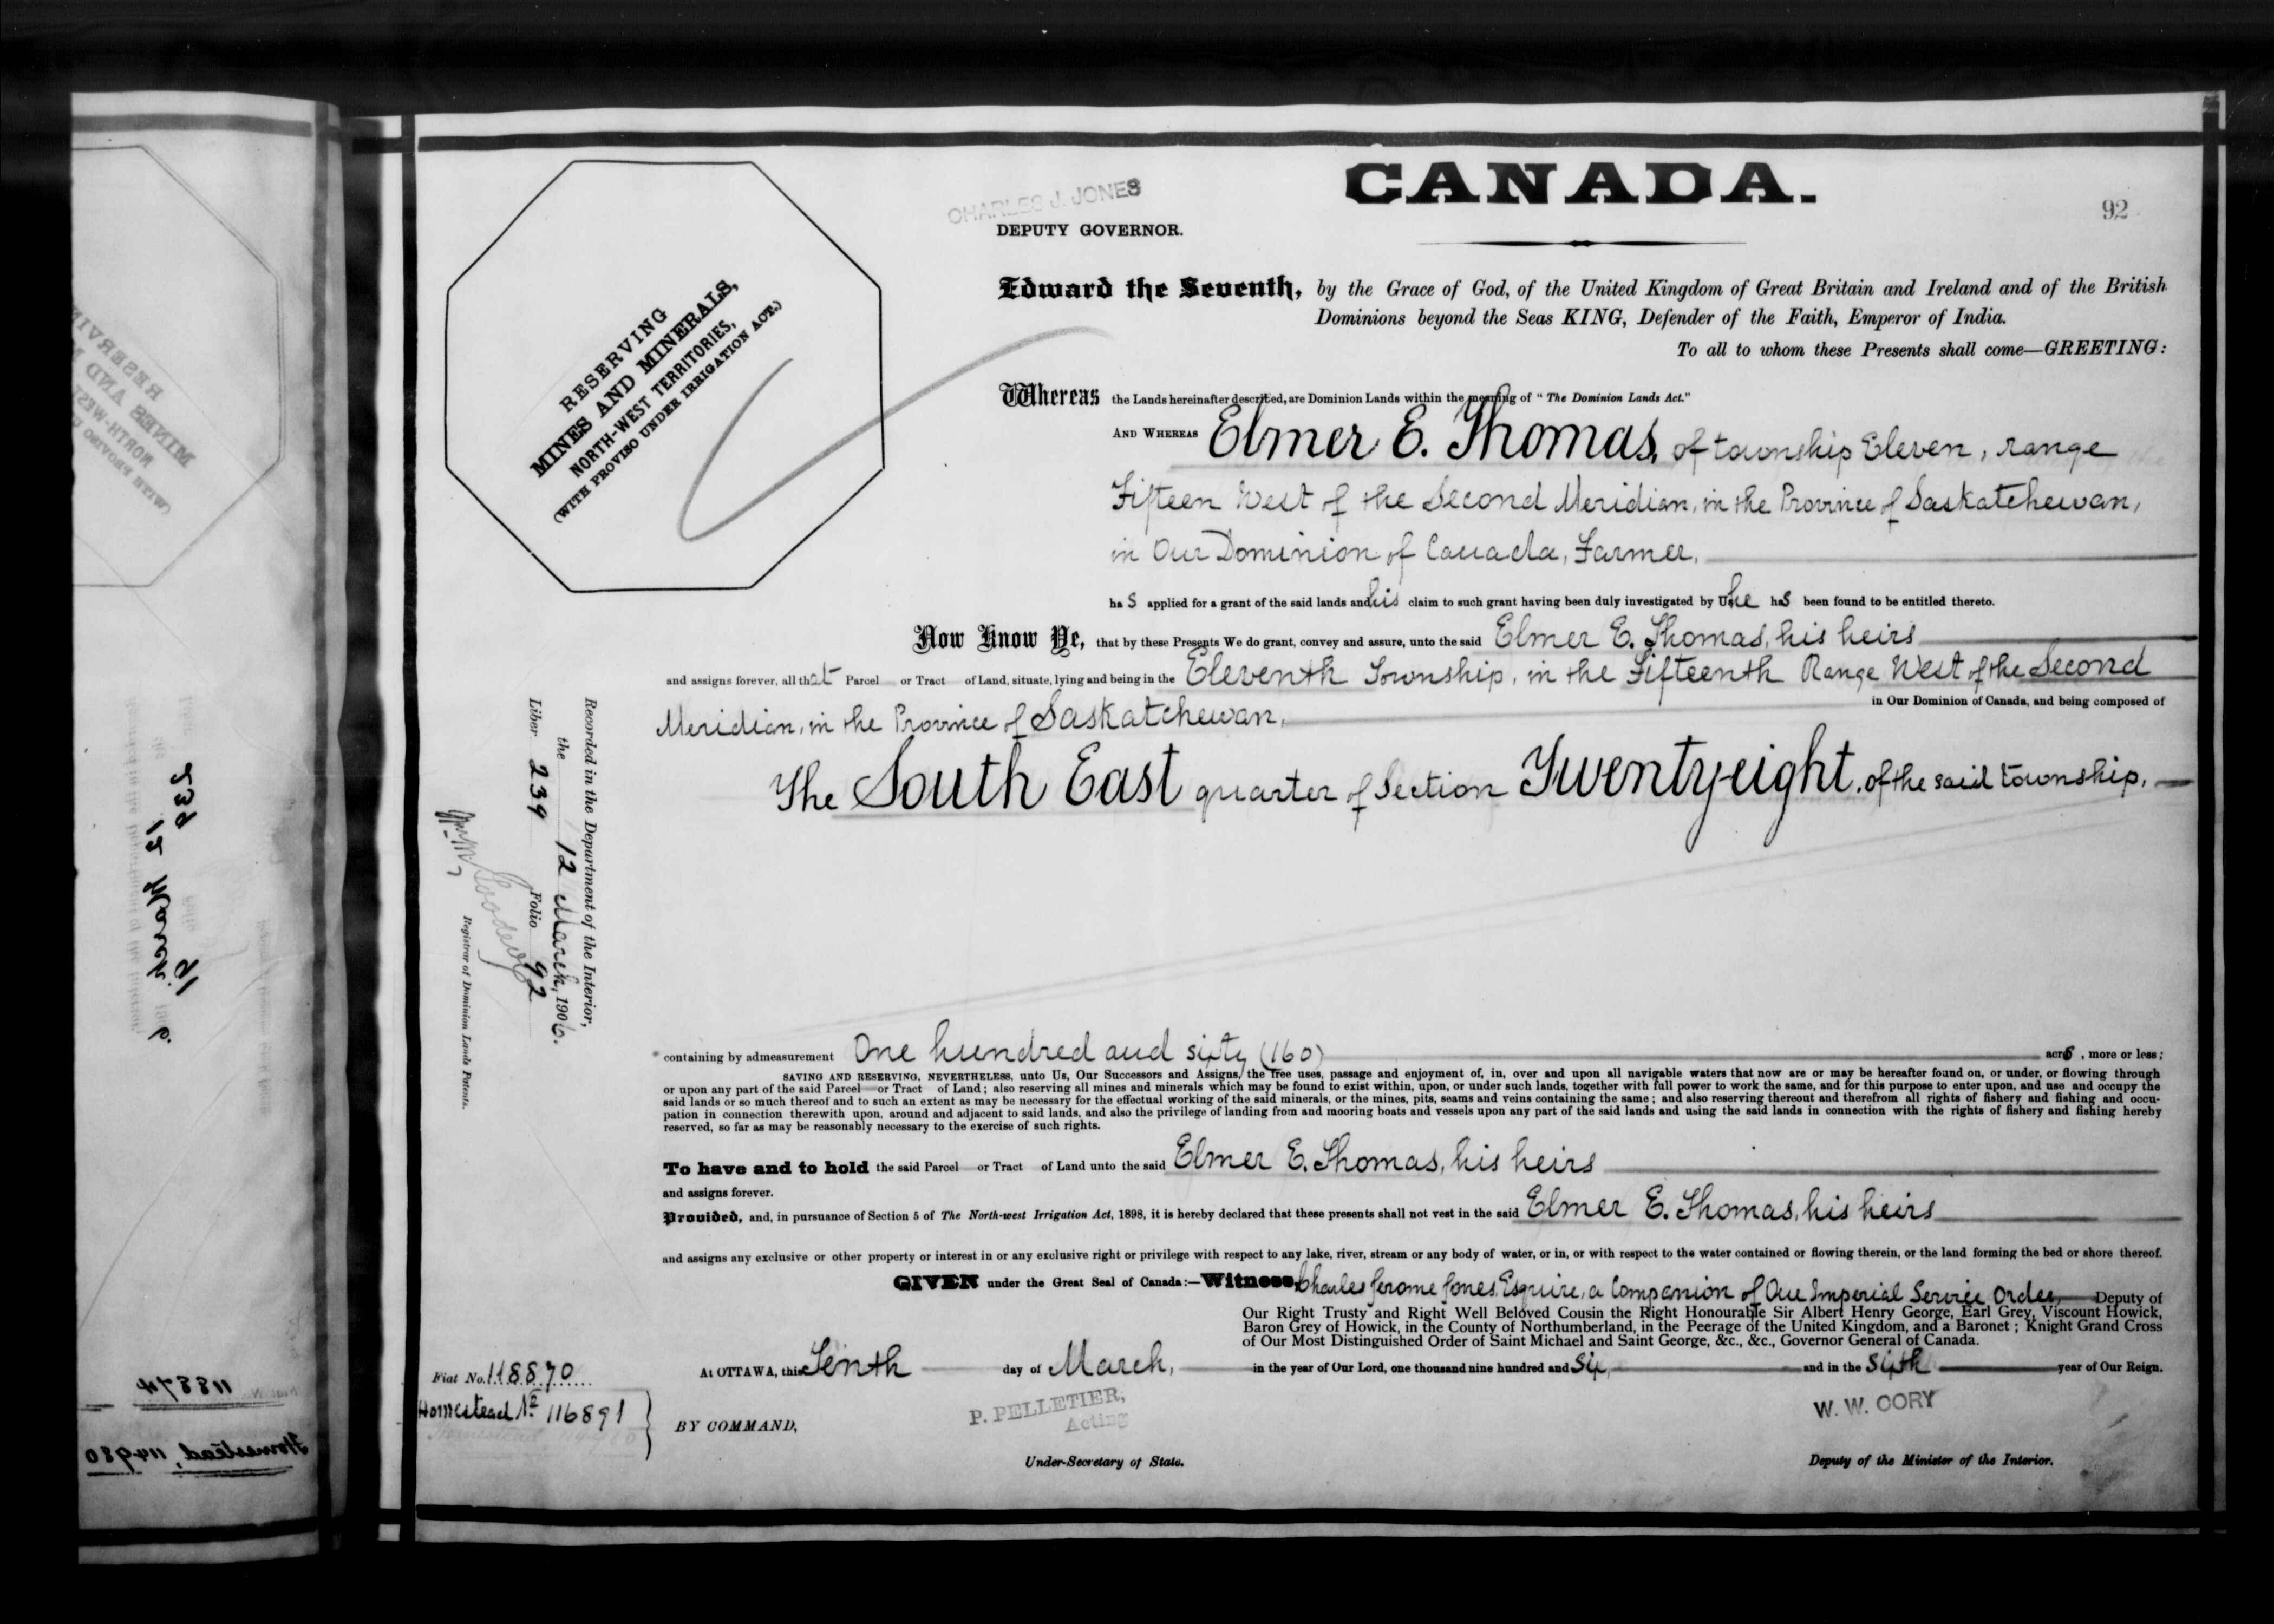 CANADA.
92
CHARLES J. JONES
DEPUTY GOVERNOR.
RESERVING
MINES AND MINERALS,
NORTH-WEST TERRITORIES,
(WITH PROVISO UNDER IRRIGATION ACT.)
Edward the Seventh, by the Grace of God, of the United Kingdom of Great Britain and Ireland and of the British
Dominions beyond the Seas KING, Defender of the Faith, Emperor of India.
To all to whom these Presents shall come—GREETING:
Whereas the Lands hereinafter described, are Dominion Lands within the meaning of "The Dominion Lands Act."
AND WHEREAS Elmer E. Thomas, of township Eleven, range
Fifteen West of the Second Meridian, in the Province of Saskatchewan,
in Our Dominion of Canada, Farmer,
has applied for a grant of the said lands and his claim to such grant having been duly investigated by Us, he has been found to be entitled thereto.
Now Know Ye, that by these Presents We do grant, convey and assure, unto the said Elmer E. Thomas, his heirs
and assigns forever, all that Parcel or Tract of Land, situate, lying and being in the Eleventh Township, in the Fifteenth Range West of the Second
Meridian, in the Province of Saskatchewan, in Our Dominion of Canada, and being composed of
The South East quarter of Section Twenty-eight, of the said township,
containing by admeasurement One hundred and sixty (160) acres, more or less;
SAVING AND RESERVING, NEVERTHELESS, unto Us, Our Successors and Assigns, the free uses, passage and enjoyment of, in, over and upon all navigable waters that now are or may be hereafter found on, or under, or flowing through
or upon any part of the said Parcel or Tract of Land; also reserving all mines and minerals which may be found to exist within, upon, or under such lands, together with full power to work the same, and for this purpose to enter upon, and use and occupy the
said lands or so much thereof and to such an extent as may be necessary for the effectual working of the said minerals, or the mines, pits, seams and veins containing the same; and also reserving thereout and therefrom all rights of fishery and fishing and occu-
pation in connection therewith upon, around and adjacent to said lands, and also the privilege of landing from and mooring boats and vessels upon any part of the said lands and using the said lands in connection with the rights of fishery and fishing hereby
reserved, so far as may be reasonably necessary to the exercise of such rights.
To have and to hold the said Parcel or Tract of Land unto the said Elmer E. Thomas, his heirs
and assigns forever.
Provided, and, in pursuance of Section 5 of The North-west Irrigation Act, 1898, it is hereby declared that these presents shall not vest in the said Elmer E. Thomas, his heirs
and assigns any exclusive or other property or interest in or any exclusive right or privilege with respect to any lake, river, stream or any body of water, or in, or with respect to the water contained or flowing therein, or the land forming the bed or shore thereof.
GIVEN under the Great Seal of Canada:—Witness, Charles Jerome Jones, Esquire, a Companion of Our Imperial Service Order, Deputy of
Our Right Trusty and Right Well Beloved Cousin the Right Honourable Sir Albert Henry George, Earl Grey, Viscount Howick,
Baron Grey of Howick, in the County of Northumberland, in the Peerage of the United Kingdom, and a Baronet; Knight Grand Cross
of Our Most Distinguished Order of Saint Michael and Saint George, &c., &c., Governor General of Canada.
At OTTAWA, this Tenth day of March, in the year of Our Lord, one thousand nine hundred and Six, and in the Sixth year of Our Reign.
BY COMMAND,
P. PELLETIER,
Acting
Under-Secretary of State.
W. W. CORY
Deputy of the Minister of the Interior.
Fiat No. 118870
Homestead No. 116891
Recorded in the Department of the Interior,
the 12 March, 1906.
Liber 239 Folio 92
Registrar of Dominion Lands Patents.
RESERVING
MINES AND
NORTH-WEST
(WITH PROVISO
239
12 March
118874
Homestead, 114980